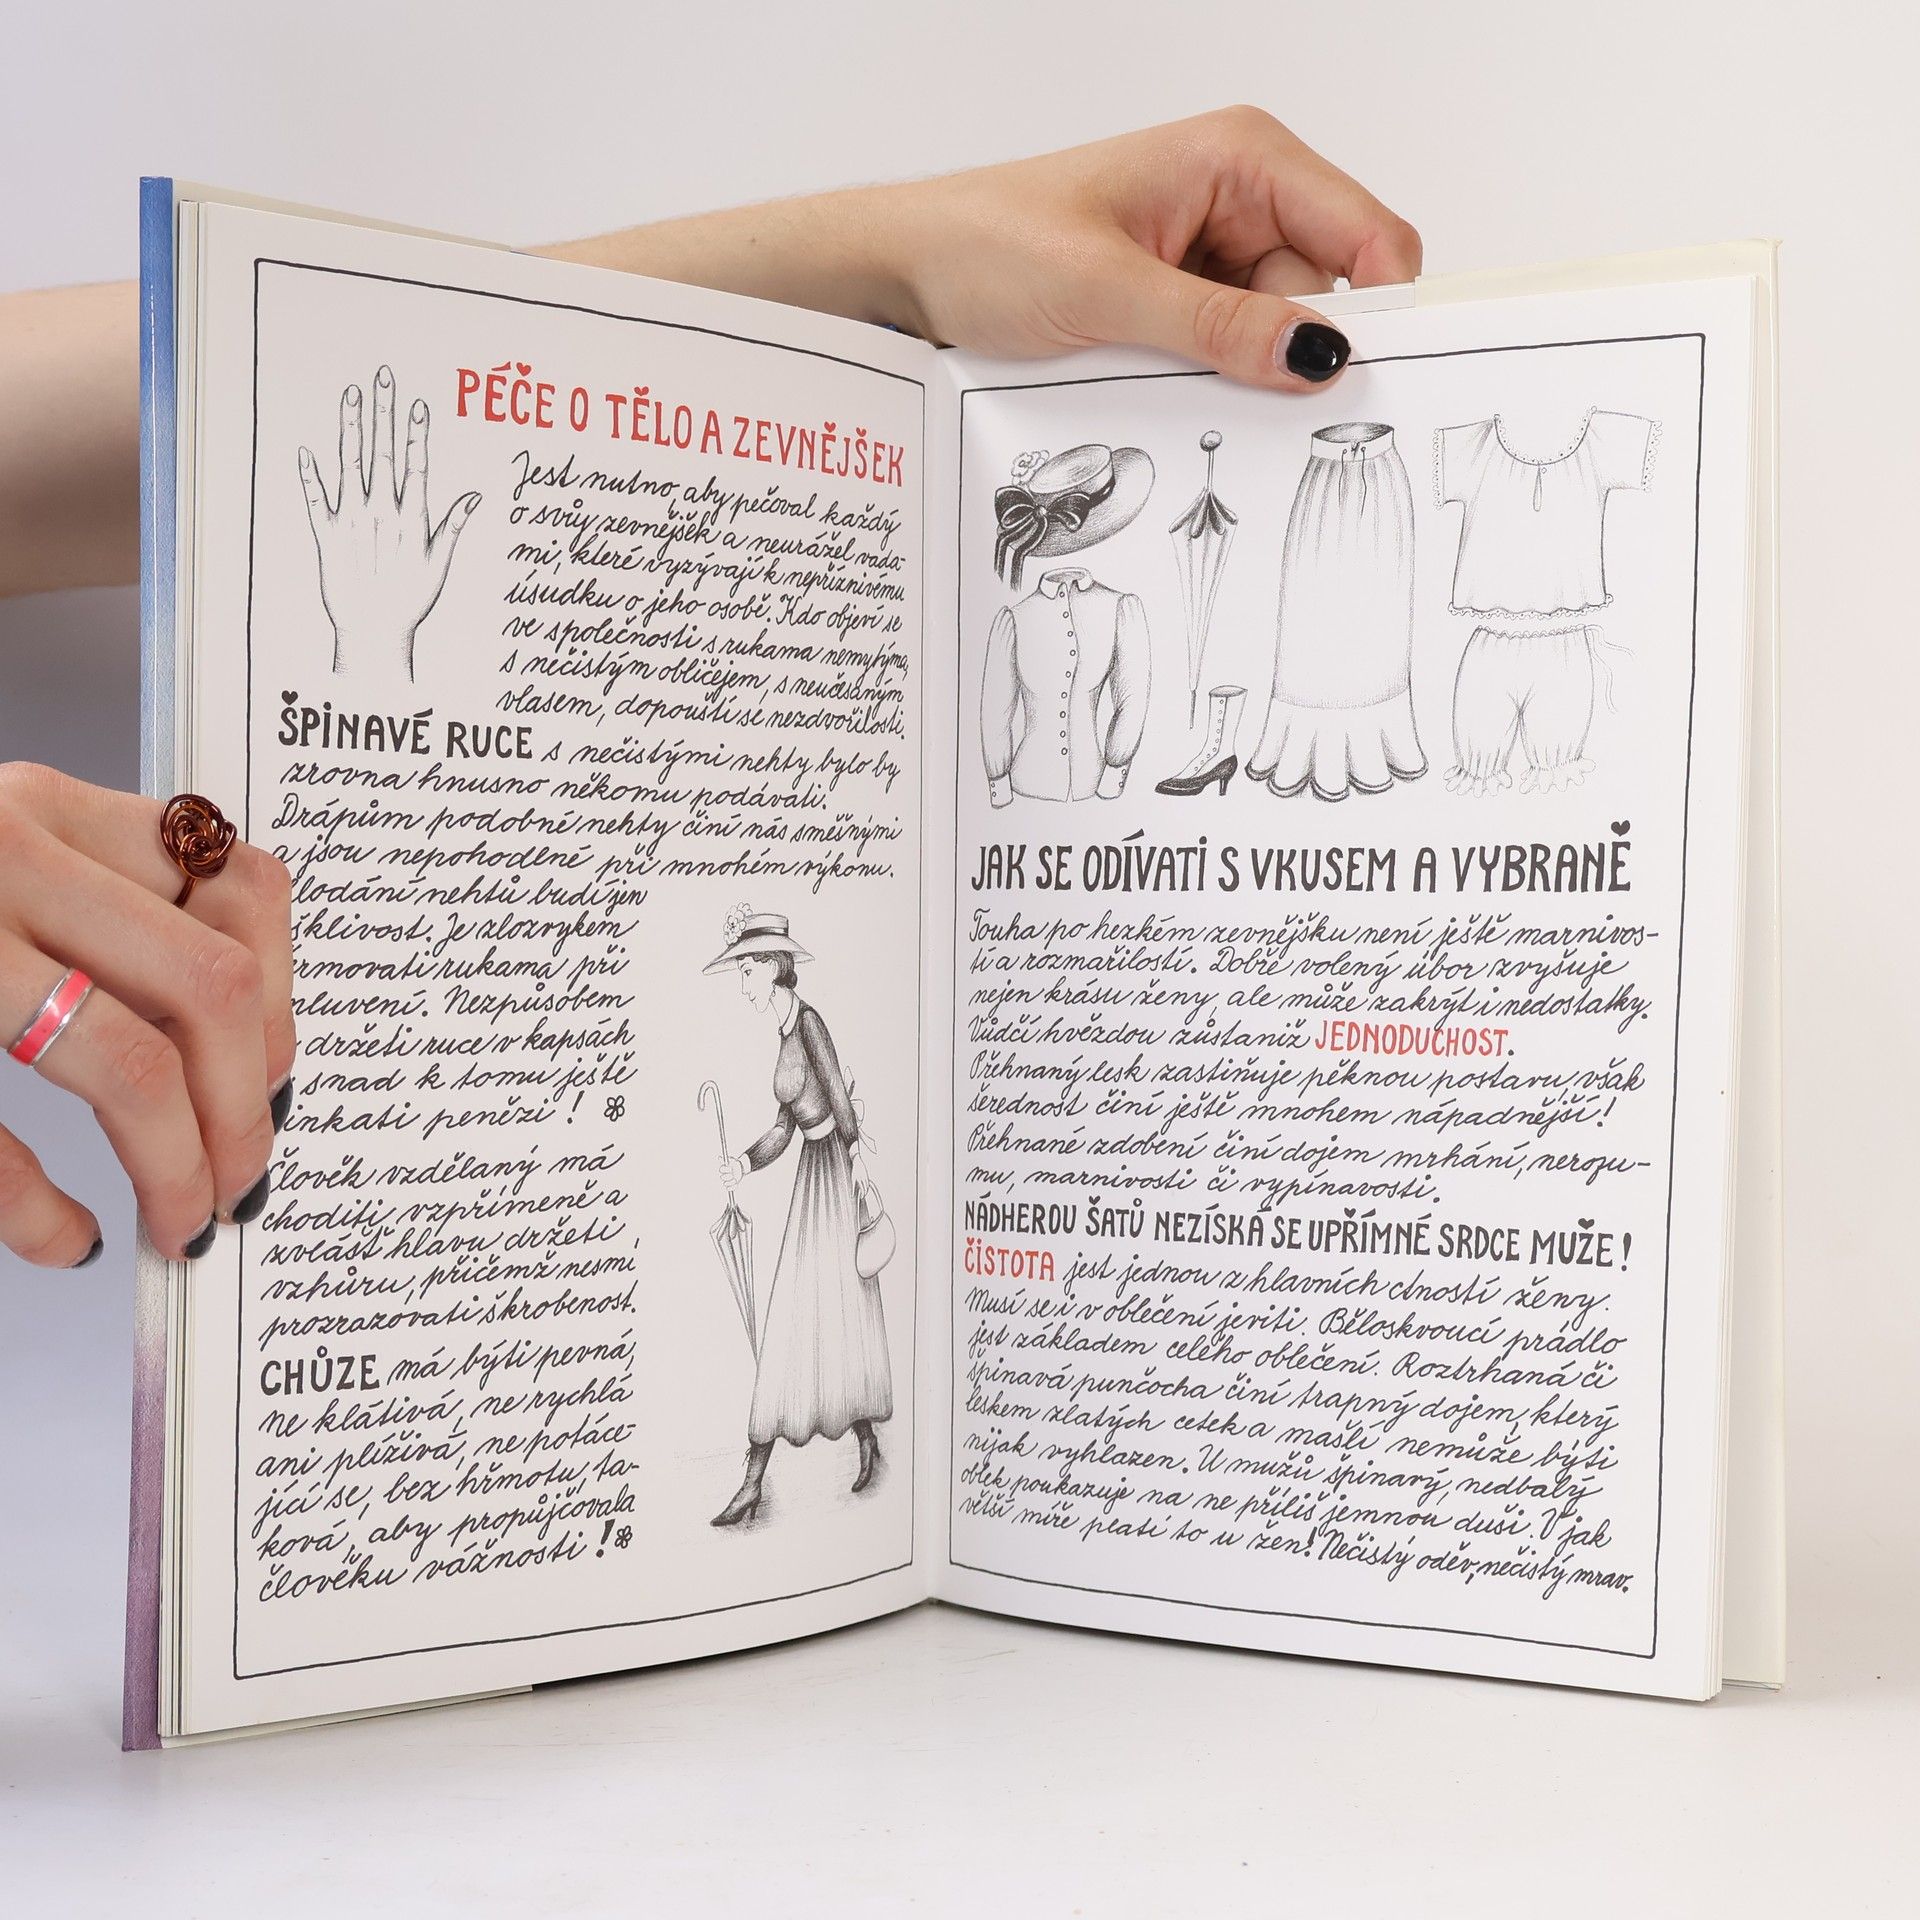 PÉČE O TĚLO A ZEVNĚJŠEK
Jest nutno, aby pečoval každý
o svůj zevnějšek a neurážel vada-
mi, které vyzývají k nepříznivému
úsudku o jeho osobě. Kdo objeví se
ve společnosti s rukama nemytýma,
s nečistým obličejem, s neučesaným
vlasem, dopouští se nezdvořilosti.
ŠPINAVÉ RUCE s nečistými nehty bylo by
zrovna hnusno někomu podávati.
Drápům podobné nehty činí nás směšnými
a jsou nepohodlné při mnohém výkonu.
lodání nehtů budí jen
šklivost. Je zlozvykem
rmovati rukama při
mluvení. Nezpůsobem
držeti ruce v kapsách
snad k tomu ještě
inkati penězi!
Člověk vzdělaný má
choditi vzpřímeně a
zvlášť hlavu držeti
vzhůru, přičemž nesmí
prozrazovati škrobenost.
CHŮZE má býti pevná,
ne klátivá, ne rychlá
ani plíživá, ne potáce-
jící se, bez hřmotu, ta-
ková, aby propůjčovala
člověku vážnosti!
JAK SE ODÍVATI S VKUSEM A VYBRANĚ
Touha po hezkém zevnějšku není ještě marnivos-
tí a rozmařilostí. Dobře volený úbor zvyšuje
nejen krásu ženy, ale může zakrýt i nedostatky.
Vůdčí hvězdou zůstaniž JEDNODUCHOST.
Přehnaný lesk zastiňuje pěknou postavu, však
šerednost činí ještě mnohem nápadnější!
Přehnané zdobení činí dojem mrhání, nerozu-
mu, marnivosti či vypínavosti.
NÁDHEROU ŠATŮ NEZÍSKÁ SE UPŘÍMNÉ SRDCE MUŽE!
ČISTOTA jest jednou z hlavních ctností ženy.
Musí se i v oblečení jeviti. Běloskvoucí prádlo
jest základem celého oblečení. Roztrhaná či
špinavá punčocha činí trapný dojem, který
leskem zlatých cetek a mašlí nemůže býti
nijak vyhlazen. U mužů špinavý, nedbalý
oblek poukazuje na ne příliš jemnou duši. V jak
větší míře platí to u žen! Nečistý oděv, nečistý mrav.